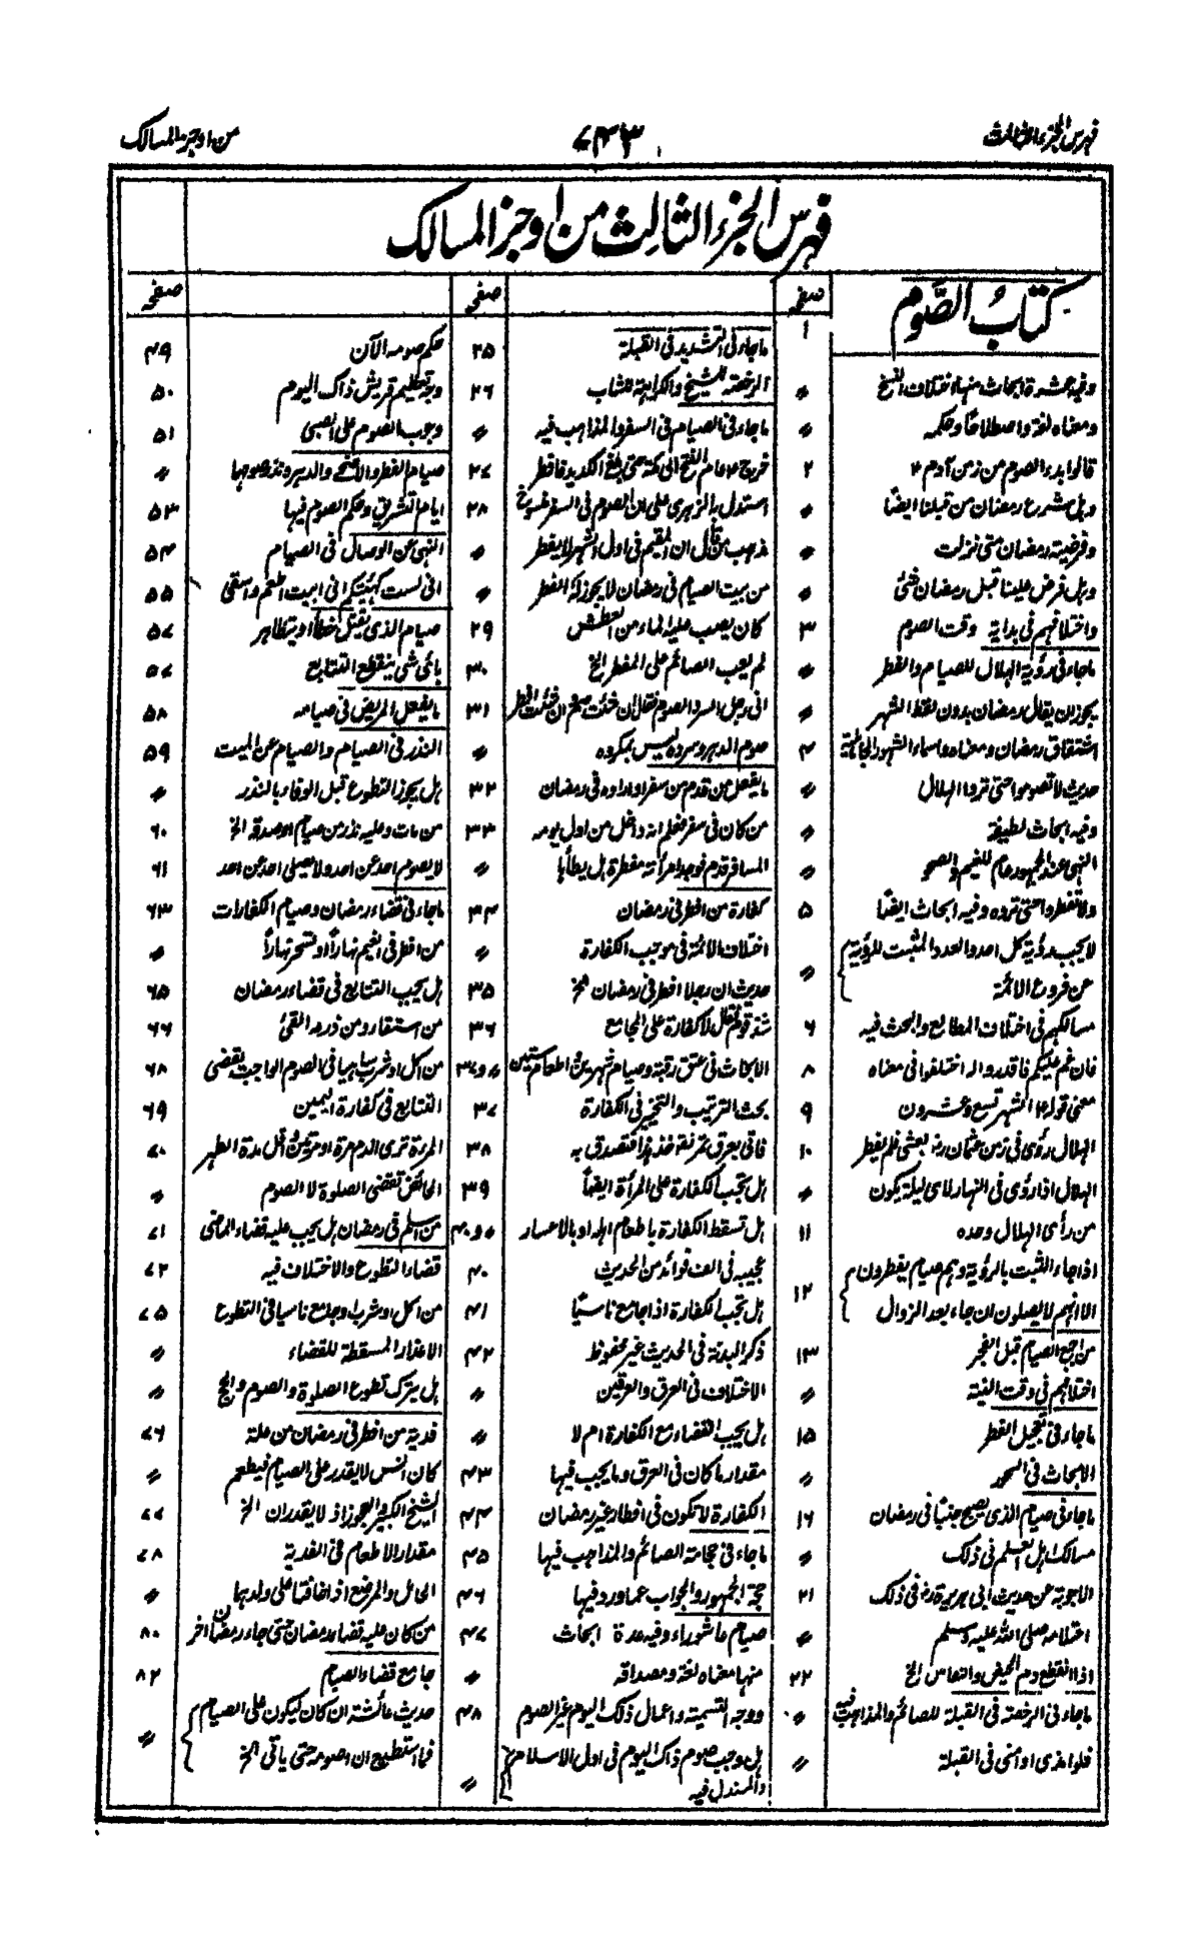 فهرس الجزء الثالث
من اوجز المسالك
فهرس الجزء الثالث من اوجز المسالك
كتاب الصَّوم
صفحه
۱
وفيه عشرة ابحاث منها اختلاف النسخ ۰
ومعناه لغة واصطلاحًا وحكمه 〃
قالوا بدء الصوم من زمن آدم ۴ ۲
وهل شرع رمضان من قبلنا ايضًا 〃
وفرضية رمضان متى نزلت 〃
وهل فرض علينا قبل رمضان شئ 〃
واختلافهم فى بداية وقت الصوم ۳
ماجاء فى رؤية الهلال للصيام والفطر 〃
يجوز ان يقال رمضان بدون لفظ الشهر 〃
اشتقاق رمضان ومعناه واسماء الشهور الجاهلية ۴
حديث لا تصوموا حتى تروا الهلال 〃
وفيه ابحاث لطيفة 〃
النهى عند الجمهور عام للغيم والصحو 〃
ولا تفطروا حتى تروه وفيه ابحاث ايضًا ۵
لا يجب رؤية كل احد والعدد المثبت للرؤية
عن فروع الائمة 〃
مسالكهم فى اختلاف المطالع والبحث فيه ۶
فان غم عليكم فاقدروا له اختلفوا فى معناه ۸
معنى قوله ۴ الشهر تسع وعشرون ۹
الهلال رؤى فى زمن عثمان رضـ بعشى فلم يفطر ۱۰
الهلال اذا رؤى فى النهار لاى ليلة يكون 〃
من رأى الهلال وحده ۱۱
اذا جاء الثبت بالرؤية وهم صيام يفطرون
الا انهم لا يصلون ان جاء بعد الزوال ۱۲
من اجمع الصيام قبل الفجر ۱۳
اختلافهم فى وقت النية 〃
ماجاء فى تعجيل الفطر ۱۵
الابحاث فى السحور 〃
ماجاء فى صيام الذى يصبح جنبًا فى رمضان ۱۶
مسالك اهل العلم فى ذلك 〃
الاجوبة عن حديث ابى هريرة رضـ فى ذلك ۲۱
احتلامه صلى الله عليه وسلم 〃
اذا انقطع دم الحيض والنفاس الخ ۲۲
ماجاء فى الرخصة فى القبلة للصائم والمذاهب فيه 〃
فلو امذى او امنى فى القبلة 〃
صفحه
ماجاء فى التشديد فى القبلة ۲۵
الرخصة للشيخ والكراهية للشاب ۲۶
ماجاء فى الصيام فى السفر والمذاهب فيه 〃
خرج ۴ عام الفتح الى مكة حتى بلغ الكديد فافطر ۲۷
استدل به الزهرى على ان الصوم فى السفر منسوخ ۲۸
مذهب من قال ان المقيم فى اول الشهر لا يفطر 〃
من بيت الصيام فى رمضان لا يجوز له الفطر 〃
كان يصب عليه الماء من العطش ۲۹
لم يعب الصائم على المفطر الخ ۳۰
انى رجل اسرد الصوم فقال ان شئت صم وان شئت افطر ۳۱
صوم الدهر وسرده ليس بمكروه 〃
مايفعل من قدم من سفر او اراده فى رمضان ۳۲
من كان فى سفر فعلم انه داخل من اول يومه ۳۳
المسافر قدم فوجد امرأته مفطرة هل يطأها 〃
كفارة من افطر فى رمضان ۳۴
اختلاف الائمة فى موجب الكفارة 〃
حديث ان رجلا افطر فى رمضان الخ ۳۵
شذ قوم فقال لا كفارة على المجامع ۳۶
الابحاث فى عتق رقبة وصيام شهرين او اطعام ستين 〃 و ۳۷
بحث الترتيب والتخيير فى الكفارة ۳۷
فاتى بعرق تمر فقال خذ هذا فتصدق به ۳۸
هل تجب الكفارة على المرأة ايضًا ۳۹
هل تسقط الكفارة باطعام اهله او بالاعسار 〃 و ۴۰
عجيبه فى الف فوائد من الحديث ۴۰
هل تجب الكفارة اذا جامع ناسيًا ۴۱
ذكر البدنة فى الحديث غير محفوظ ۴۲
الاختلاف فى العرق والعرقين 〃
هل يجب القضاء مع الكفارة ام لا 〃
مقدار ما كان فى العرق وما يجب فيها ۴۳
الكفارة لا تكون فى افطار غير رمضان ۴۴
ماجاء فى حجامة الصائم والمذاهب فيها ۴۵
حجة الجمهور والجواب عما ورد فيها ۴۶
صيام عاشوراء وفيه عدة ابحاث ۴۷
منها معناه لغة ومصداقه 〃
ووجه التسمية واعمال ذلك اليوم غير الصوم ۴۸
هل وجب صوم ذاك اليوم فى اول الاسلام
والمستدل فيه 〃
صفحه
حكم صومه الآن ۴۹
وجه تعظيم قريش ذاك اليوم ۵۰
وجوب الصوم على الصبى ۵۱
صيام الفطر والاضحى والدهر ونذر صومها 〃
ايام التشريق وحكم الصوم فيها ۵۳
النهى عن الوصال فى الصيام ۵۴
انى لست كهيئتكم انى ابيت اطعم واسقى ۵۵
صيام الذى يقتل خطأ او يتظاهر ۵۷
باى شئ ينقطع التتابع ۵۷
مايفعل المريض فى صيامه ۵۸
النذر فى الصيام والصيام عن الميت ۵۹
هل يجوز التطوع قبل الوفاء بالنذر 〃
من مات وعليه نذر من صيام او صدقة الخ ۶۰
لا يصوم احد عن احد ولا يصلى احد عن احد ۶۱
ماجاء فى قضاء رمضان وصيام الكفارات ۶۳
من افطر فى الغيم نهارًا او تسحر نهارًا 〃
هل يجب التتابع فى قضاء رمضان ۶۵
من استقاء ومن ذرعه القئ ۶۶
من اكل او شرب ساهيا فى الصوم الواجب يقضى ۶۸
التتابع فى كفارة اليمين ۶۹
المرأة ترى الدم مرة او مرتين واقل مدة الطهر ۷۰
الحائض تقضى الصلوة لا الصوم 〃
من اسلم فى رمضان هل يجب عليه قضاء الماضى ۷۱
قضاء التطوع والاختلاف فيه ۷۲
من اكل او شرب او جامع ناسيا فى التطوع ۷۵
الاعذار المسقطة للقضاء 〃
هل يترك تطوع الصلوة والصوم والحج 〃
فدية من افطر فى رمضان من علة ۷۶
كان انس لا يقدر على الصيام فيطعم 〃
الشيخ الكبير والعجوز اذ لا يقدران الخ ۷۷
مقدار الاطعام فى الفدية ۷۸
الحامل والمرضع اذا خافتا على ولدها 〃
من كان عليه قضاء رمضان حتى جاء رمضان اخر ۸۰
جامع قضاء الصيام ۸۲
حديث عائشة ان كان ليكون على الصيام
فما استطيع ان اصومه حتى ياتى الخ 〃